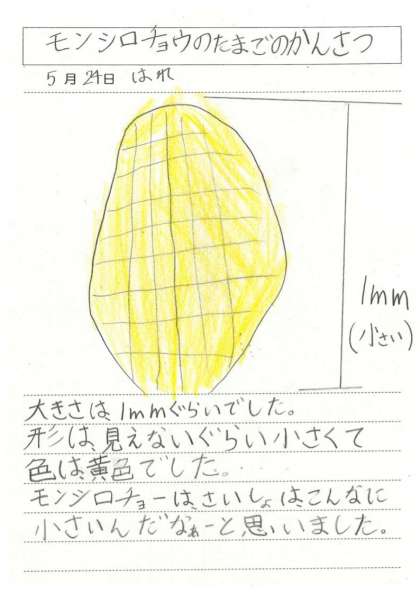 モンシロチョウのたまごのかんさつ
5月24日 はれ
1mm
(小さい)
大きさは1mmぐらいでした。
形は見えないぐらい小さくて
色は黄色でした。
モンシロチョーは、さいしょは、こんなに
小さいんだなぁーと思いました。